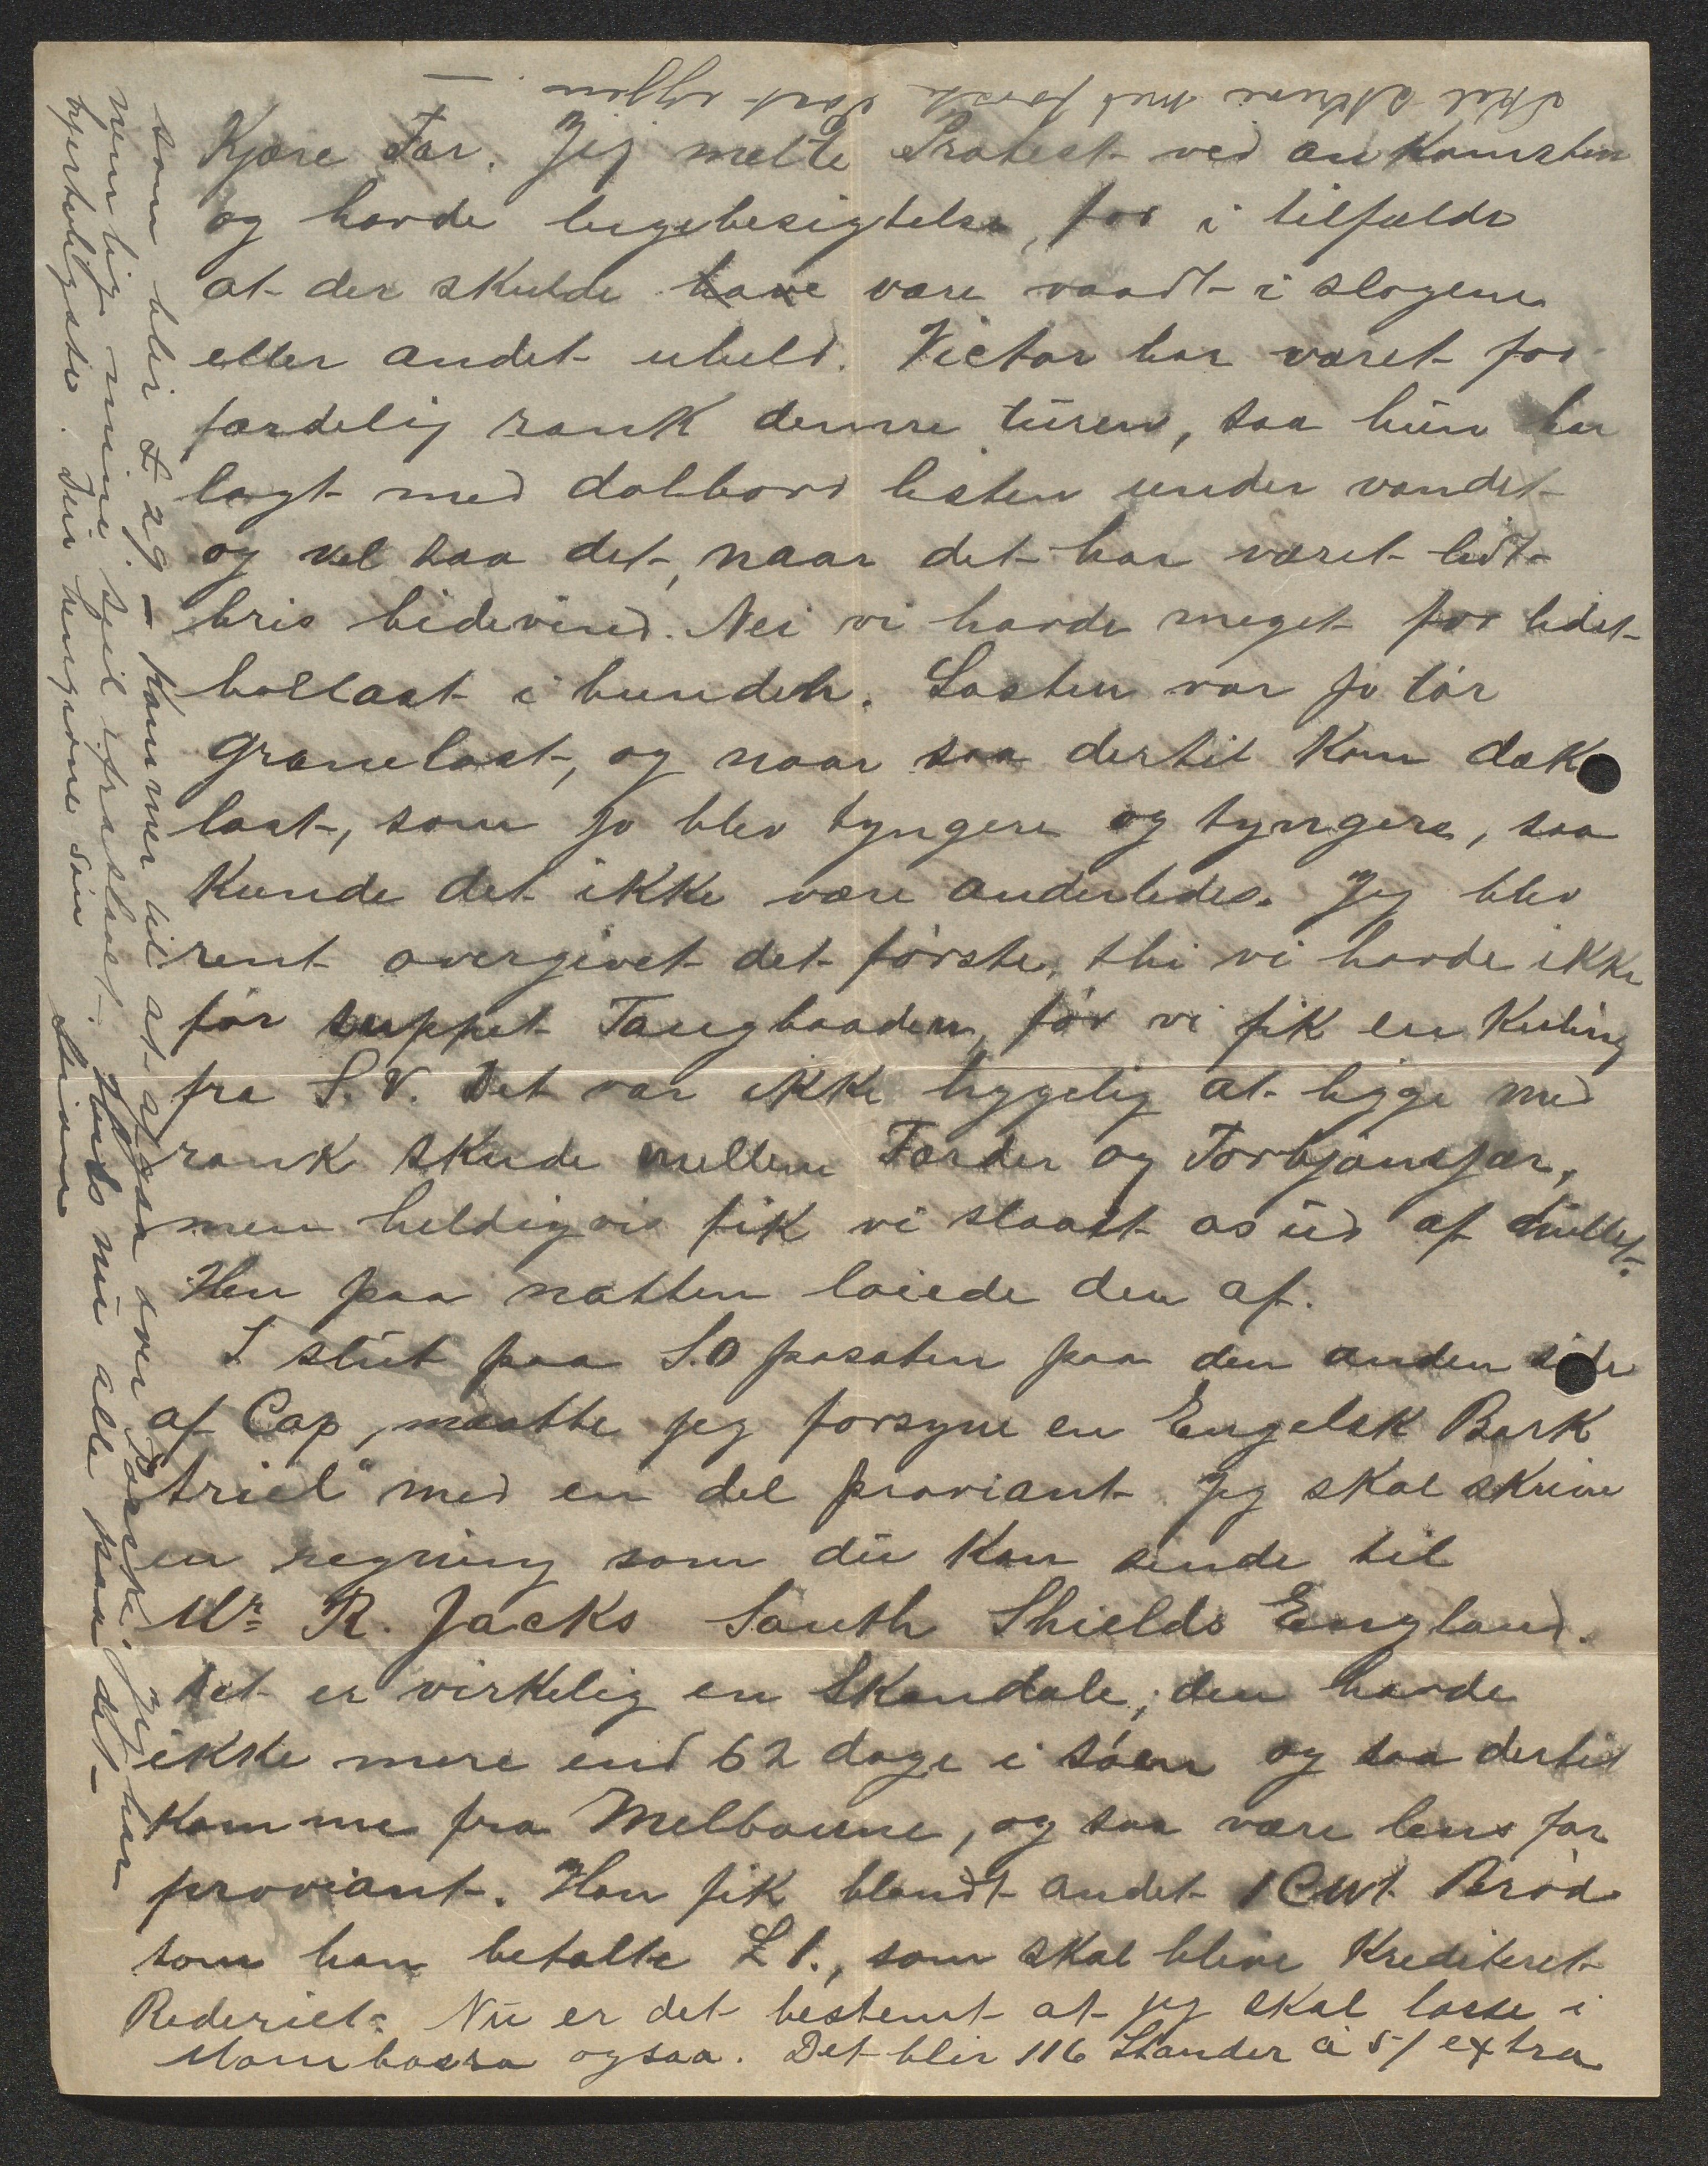 Kjære Far. Jeg melte Protest ved ankomsten
og havde lugebesigtelse, for i tilfælde
at der skulde have være vaadt i slogene
eller andet uheld. Victor har været for
færdelig rank denne turen, saa hun har
lagt med dolbord listen under vandet
og vel saa det, naar det har været lidt
bris bidevind. Nei vi havde meget for lidet
ballast i bunden. Lasten var jo tør
granelast, og naar saa dertil kom dæk
last, som jo blev tyngere og tyngere, saa
kunde det ikke være anderledes. Jeg blev
rent overgivet det første, thi vi havde ikke
før suppet Taugbaaden, før vi fik en Kuling
fra S.V. Det var ikke hyggelig at ligge med
rank skude mellem Færder og Torbjønsjær,
men heldigvis fik vi slaaet os ud af hullet.
Hen paa natten løiede den af.
I slut paa S.O pasaten paa den anden side
af Cap, maatte jeg forsyne en Engelsk Bark
Ariel" med en del proviant. Jeg skal skrive
en regning som du kan sende til
Mr R. Jacks South Shields England.
Det er virkelig en Skandale, den havde
ikke mere end 62 dage i søen og saa dertil
komme fra Melbourne, og saa være lens for
proviant. Han fik blandt andet 1 Cwt Brød
som han betalte £1., som skal blive Krediteret
Rederiet. Nu er det bestemt at jeg skal losse i
Mombassa ogsaa. Det blir 116 Stander a 5/ extra
som blir £ 29 – kommer til at ogsaa over jeg har
nemlig mine seil ifraslaaet. Hils nu alle paa det
hjerteligste. Din hengivne søn
Skal skrive med første Post igjen –